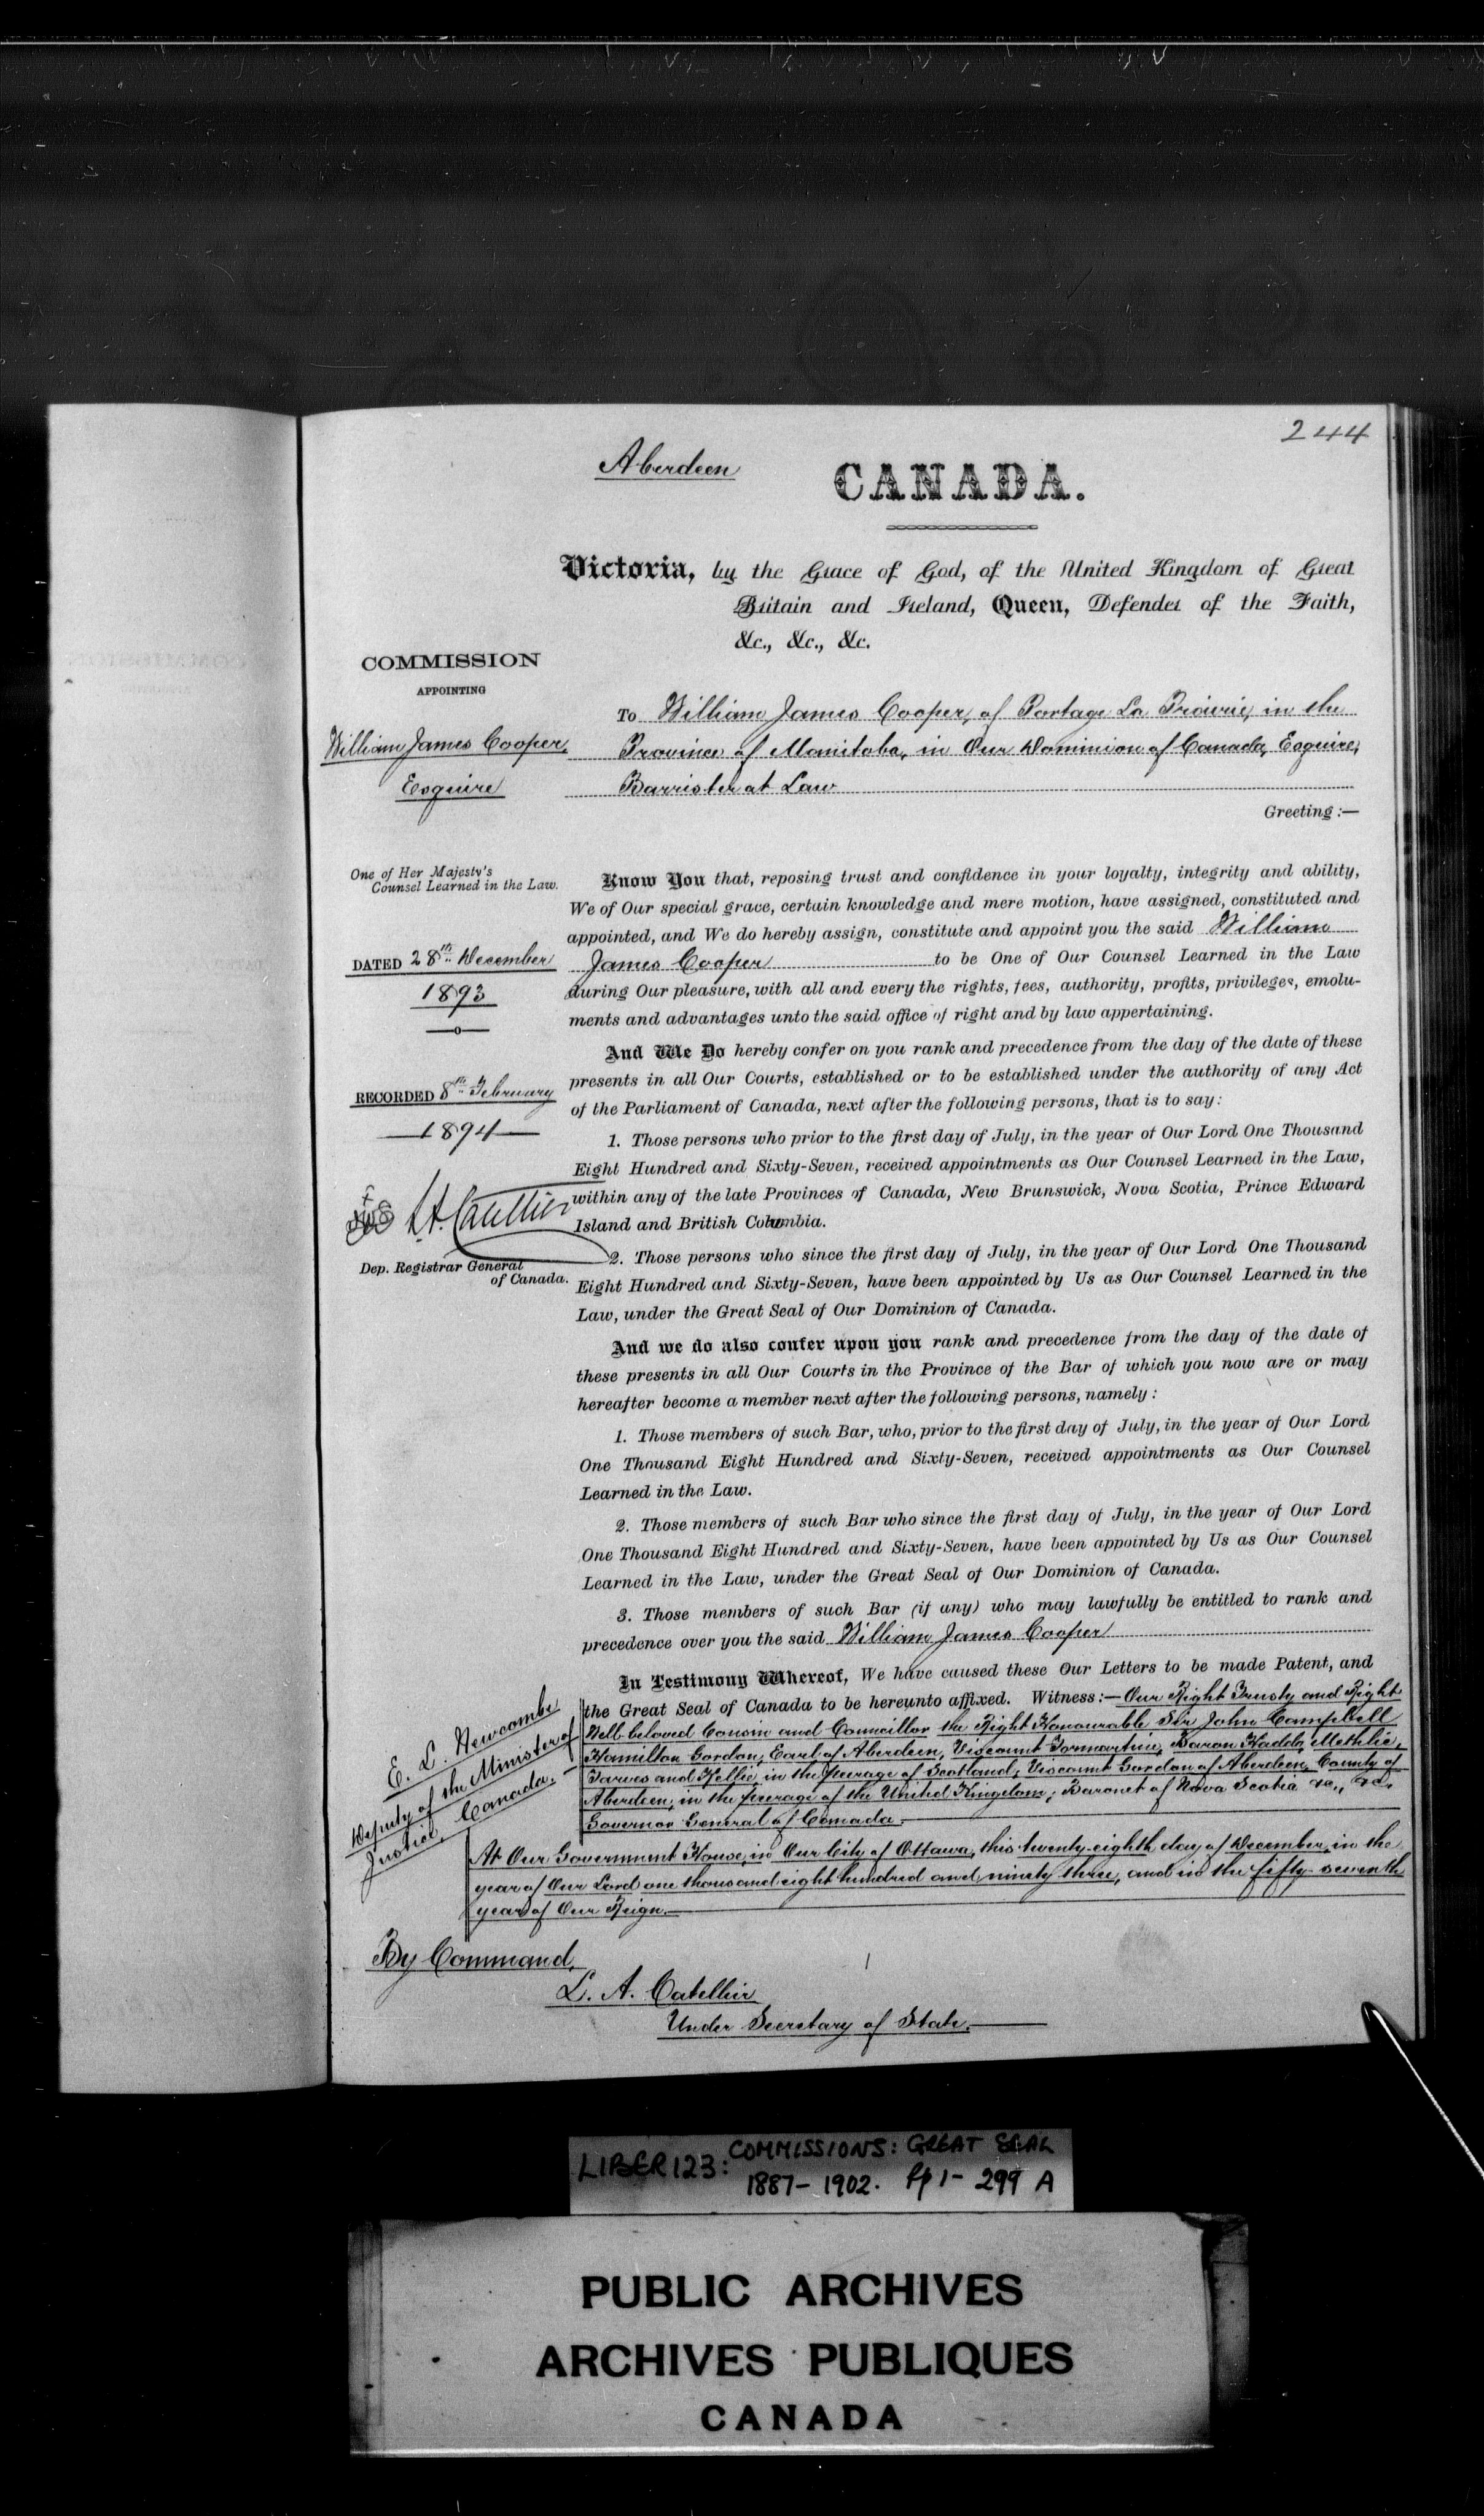 244
Aberdeen
CANADA.
Victoria, by the Grace of God, of the United Kingdom of Great
Britain and Ireland, Queen, Defender of the Faith,
&c., &c., &c.
COMMISSION
APPOINTING
William James Cooper,
Esquire
One of Her Majesty's
Counsel Learned in the Law.
DATED 28th December
1893
RECORDED 8th February
1894
L.A. Catellier
Dep. Registrar General
of Canada.
To William James Cooper, of Portage La Prairie, in the
Province of Manitoba, in Our Dominion of Canada, Esquire,
Barrister at Law
Greeting :—
Know You that, reposing trust and confidence in your loyalty, integrity and ability,
We of Our special grace, certain knowledge and mere motion, have assigned, constituted and
appointed, and We do hereby assign, constitute and appoint you the said William
James Cooper to be One of Our Counsel Learned in the Law
during Our pleasure, with all and every the rights, fees, authority, profits, privileges, emolu-
ments and advantages unto the said office of right and by law appertaining.
And We Do hereby confer on you rank and precedence from the day of the date of these
presents in all Our Courts, established or to be established under the authority of any Act
of the Parliament of Canada, next after the following persons, that is to say:
1. Those persons who prior to the first day of July, in the year of Our Lord One Thousand
Eight Hundred and Sixty-Seven, received appointments as Our Counsel Learned in the Law,
within any of the late Provinces of Canada, New Brunswick, Nova Scotia, Prince Edward
Island and British Columbia.
2. Those persons who since the first day of July, in the year of Our Lord One Thousand
Eight Hundred and Sixty-Seven, have been appointed by Us as Our Counsel Learned in the
Law, under the Great Seal of Our Dominion of Canada.
And we do also confer upon you rank and precedence from the day of the date of
these presents in all Our Courts in the Province of the Bar of which you now are or may
hereafter become a member next after the following persons, namely :
1. Those members of such Bar, who, prior to the first day of July, in the year of Our Lord
One Thousand Eight Hundred and Sixty-Seven, received appointments as Our Counsel
Learned in the Law.
2. Those members of such Bar who since the first day of July, in the year of Our Lord
One Thousand Eight Hundred and Sixty-Seven, have been appointed by Us as Our Counsel
Learned in the Law, under the Great Seal of Our Dominion of Canada.
3. Those members of such Bar (if any) who may lawfully be entitled to rank and
precedence over you the said William James Cooper
In Testimony Whereof, We have caused these Our Letters to be made Patent, and
the Great Seal of Canada to be hereunto affixed. Witness:— Our Right Trusty and Right
Well-beloved Cousin and Councillor the Right Honourable Sir John Campbell
Hamilton Gordon, Earl of Aberdeen, Viscount Formartine, Baron Haddo, Methlic,
Tarves and Kellie, in the peerage of Scotland; Viscount Gordon of Aberdeen, County of
Aberdeen, in the peerage of the United Kingdom; Baronet of Nova Scotia &c., &c.
Governor General of Canada.
E. L. Newcombe
Deputy of the Minister of
Justice, Canada.
At Our Government House, in Our City of Ottawa, this twenty-eighth day of December, in the
year of Our Lord one thousand eight hundred and ninety three, and in the fifty-seventh
year of Our Reign.
By Command,
L. A. Catellier
Under Secretary of State.
LIBER 123: COMMISSIONS: GREAT SEAL
1887-1902. Pp 1-299 A
PUBLIC ARCHIVES
ARCHIVES PUBLIQUES
CANADA